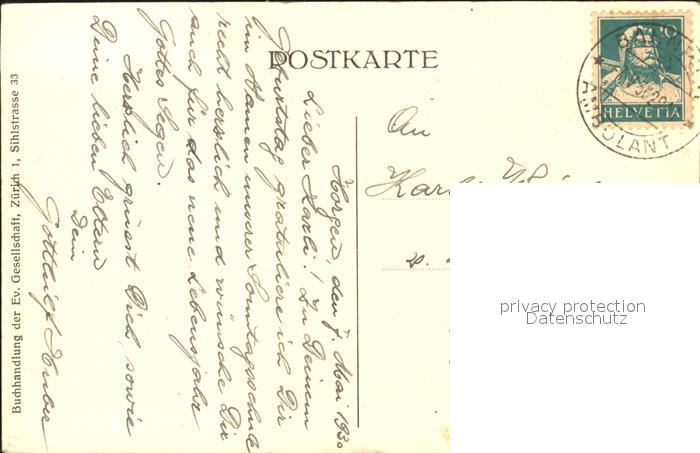 POSTKARTE
Horgen, den 7. Mai 1930
Lieber Karli! Zu Deinem
Geburtstag gratuliere ich Dir
im Namen unserer Sonntagsschule
recht herzlich und wünsche Dir
auch für das neue Lebensjahr
Gottes Segen.
Herzlich grüsst Dich, sowie
Deine lieben Eltern
Dein
Gotthilf Huber
Buchhandlung der Ev. Gesellschaft, Zürich 1, Sihlstrasse 33
An
10
HELVETIA
AMBULANT
privacy protection
Datenschutz